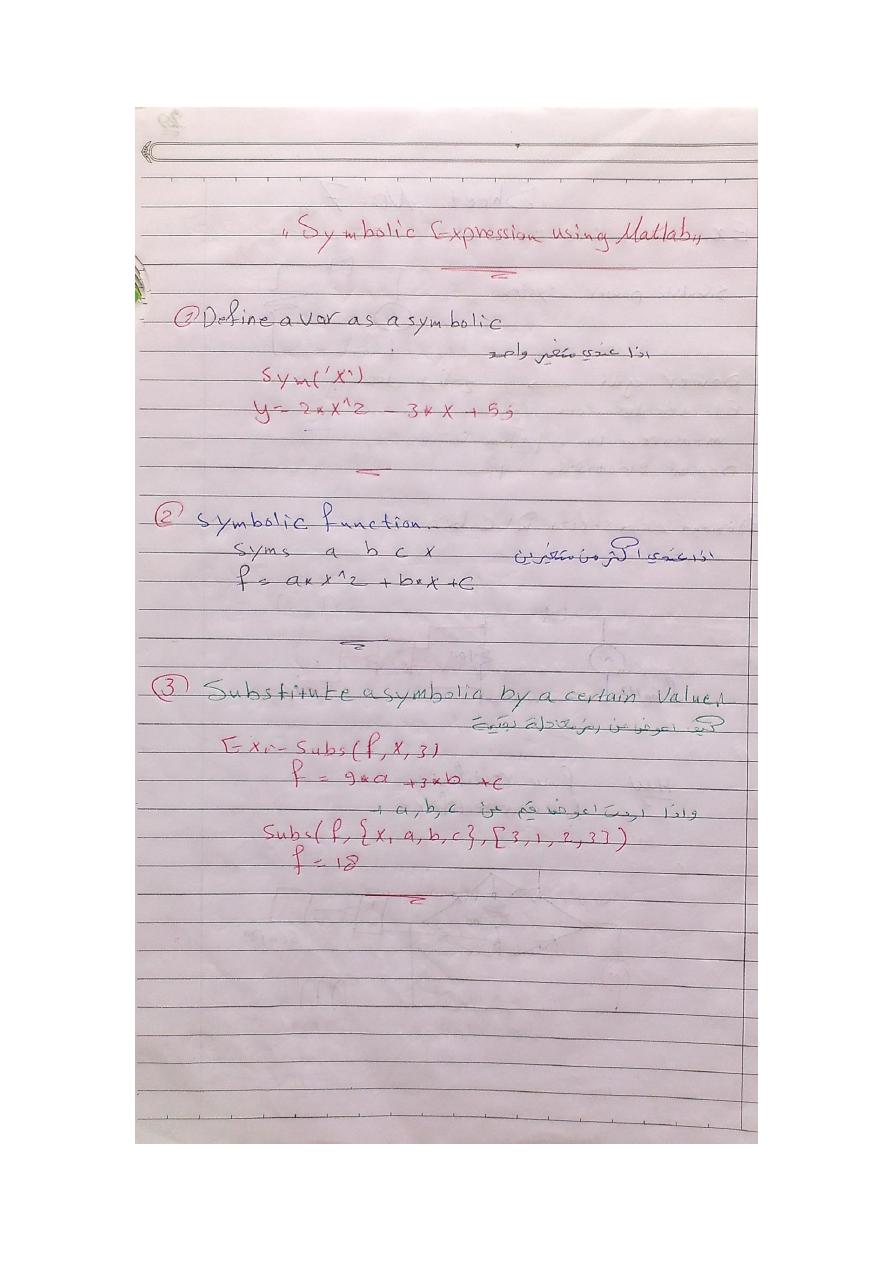 "Symbolic Expression using Matlab"
① Define a var as a symbolic
اذا عندي متغير واحد
Sym('X')
y= 2*X^2 - 3*X + 5;
② Symbolic function.
Syms a b c x
اذا عندي اكثر من متغيرين
f= a*x^2 + b*x + c
③ Substitute a symbolic by a certain value
كيف اعوض عن رمز معادلة بقيمة
Ex:- Subs(f, X, 3)
f = 9*a +3*b +c
واذا اردت اعوض قيم عن a, b, c
Subs(f, {x, a, b, c}, [3, 1, 2, 3])
f = 18